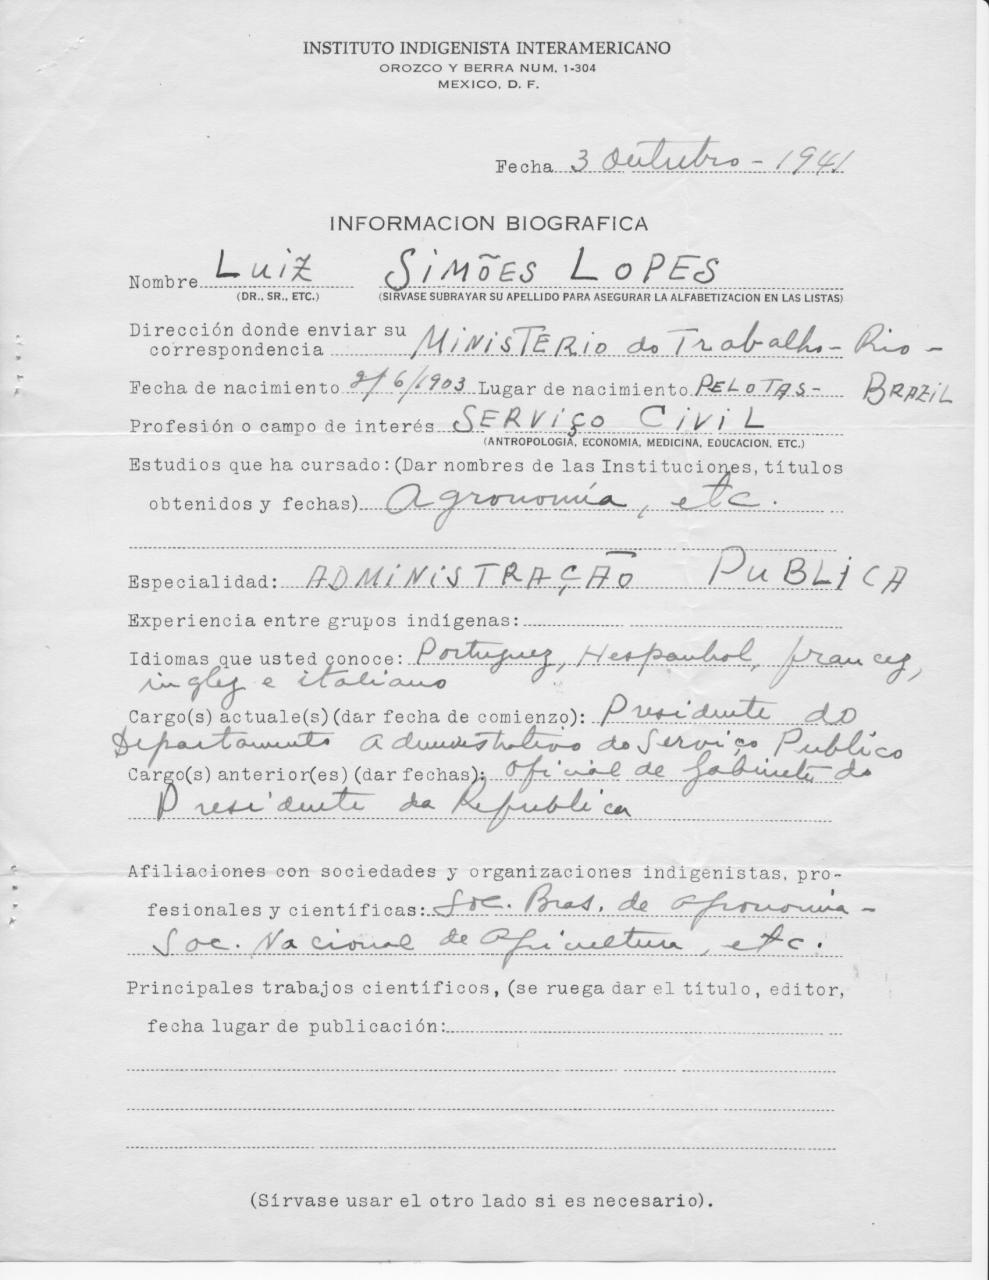 INSTITUTO INDIGENISTA INTERAMERICANO
OROZCO Y BERRA NUM. 1-304
MEXICO, D. F.
Fecha 3 Outubro - 1941
INFORMACION BIOGRAFICA
Nombre Luiz SIMÕES LOPES
(DR., SR., ETC.) (SIRVASE SUBRAYAR SU APELLIDO PARA ASEGURAR LA ALFABETIZACION EN LAS LISTAS)
Dirección donde enviar su
correspondencia MINISTERIO do Trabalho - Rio -
Fecha de nacimiento 2/6/1903 Lugar de nacimiento PELOTAS - BRAZIL
Profesión o campo de interés SERVIÇO CIVIL
(ANTROPOLOGIA, ECONOMIA, MEDICINA, EDUCACION, ETC.)
Estudios que ha cursado: (Dar nombres de las Instituciones, títulos
obtenidos y fechas) Agronomía, etc.
Especialidad: ADMINISTRAÇÃO PUBLICA
Experiencia entre grupos indígenas:
Idiomas que usted conoce: Portuguez, Hespanhol, francez,
inglez e italiano
Cargo(s) actuale(s) (dar fecha de comienzo): Presidente do
Departamento Administrativo do Serviço Publico
Cargo(s) anterior(es) (dar fechas): Oficial de Gabinete do
Presidente da Republica
Afiliaciones con sociedades y organizaciones indigenistas, pro-
fesionales y científicas: Soc. Bras. de Agronomia -
Soc. Nacional de Agricultura, etc.
Principales trabajos científicos, (se ruega dar el título, editor,
fecha lugar de publicación:
(Sírvase usar el otro lado si es necesario).